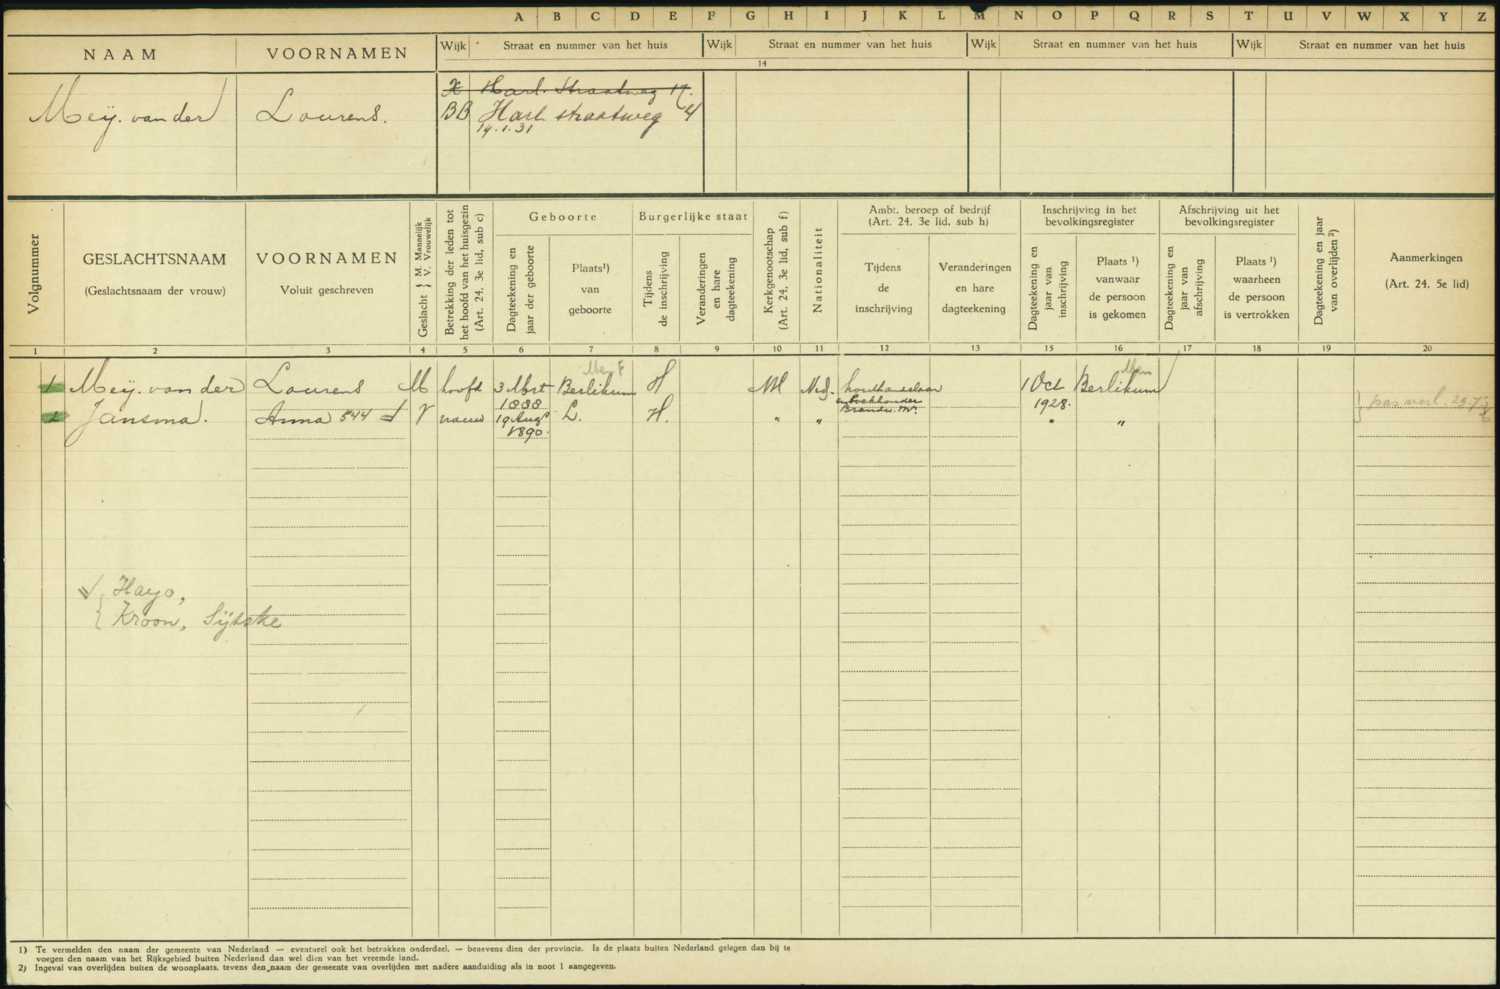 A B C D E F G H I J K L M N O P Q R S T U V W X Y Z
NAAM VOORNAMEN Wijk Straat en nummer van het huis Wijk Straat en nummer van het huis Wijk Straat en nummer van het huis Wijk Straat en nummer van het huis
14
X Harl. Straatweg 17.
Meÿ. van der Lourens. BB Harl. straatweg 4
19.1.31
Volgnummer
GESLACHTSNAAM
(Geslachtsnaam der vrouw)
VOORNAMEN
Voluit geschreven
Geslacht } M. Mannelijk
V. Vrouwelijk
Betrekking der leden tot
het hoofd van het huisgezin
(Art. 24, 3e lid, sub c)
Geboorte
Dagteekening en
jaar der geboorte
Plaats¹)
van
geboorte
Burgerlijke staat
Tijdens
de inschrijving
Veranderingen
en hare
dagteekening
Kerkgenootschap
(Art. 24, 3e lid, sub f)
Nationaliteit
Ambt, beroep of bedrijf
(Art. 24, 3e lid, sub h)
Tijdens
de
inschrijving
Veranderingen
en hare
dagteekening
Inschrijving in het
bevolkingsregister
Dagteekening en
jaar van
inschrijving
Plaats ¹)
vanwaar
de persoon
is gekomen
Afschrijving uit het
bevolkingsregister
Dagteekening en
jaar van
afschrijving
Plaats ¹)
waarheen
de persoon
is vertrokken
Dagteekening en jaar
van overlijden ²)
Aanmerkingen
(Art. 24, 5e lid)
1 2 3 4 5 6 7 8 9 10 11 12 13 15 16 17 18 19 20
1 Meÿ. van der Lourens M hoofd 3 Mrt Berlikum H NH Ned. 1 Oct Berlikum
1888 en boekhouder 1928.
2 Jansma. Anna 544 V vrouw 19 Aug L. H. " " " "
1890.
Hayo,
Kroon, Sÿtske
1) Te vermelden den naam der gemeente van Nederland — eventueel ook het betrokken onderdeel, — benevens dien der provincie. Is de plaats buiten Nederland gelegen dan bij te
voegen den naam van het Rijksgebied buiten Nederland dan wel dien van het vreemde land.
2) Ingeval van overlijden buiten de woonplaats, tevens den naam der gemeente van overlijden met nadere aanduiding als in noot 1 aangegeven.